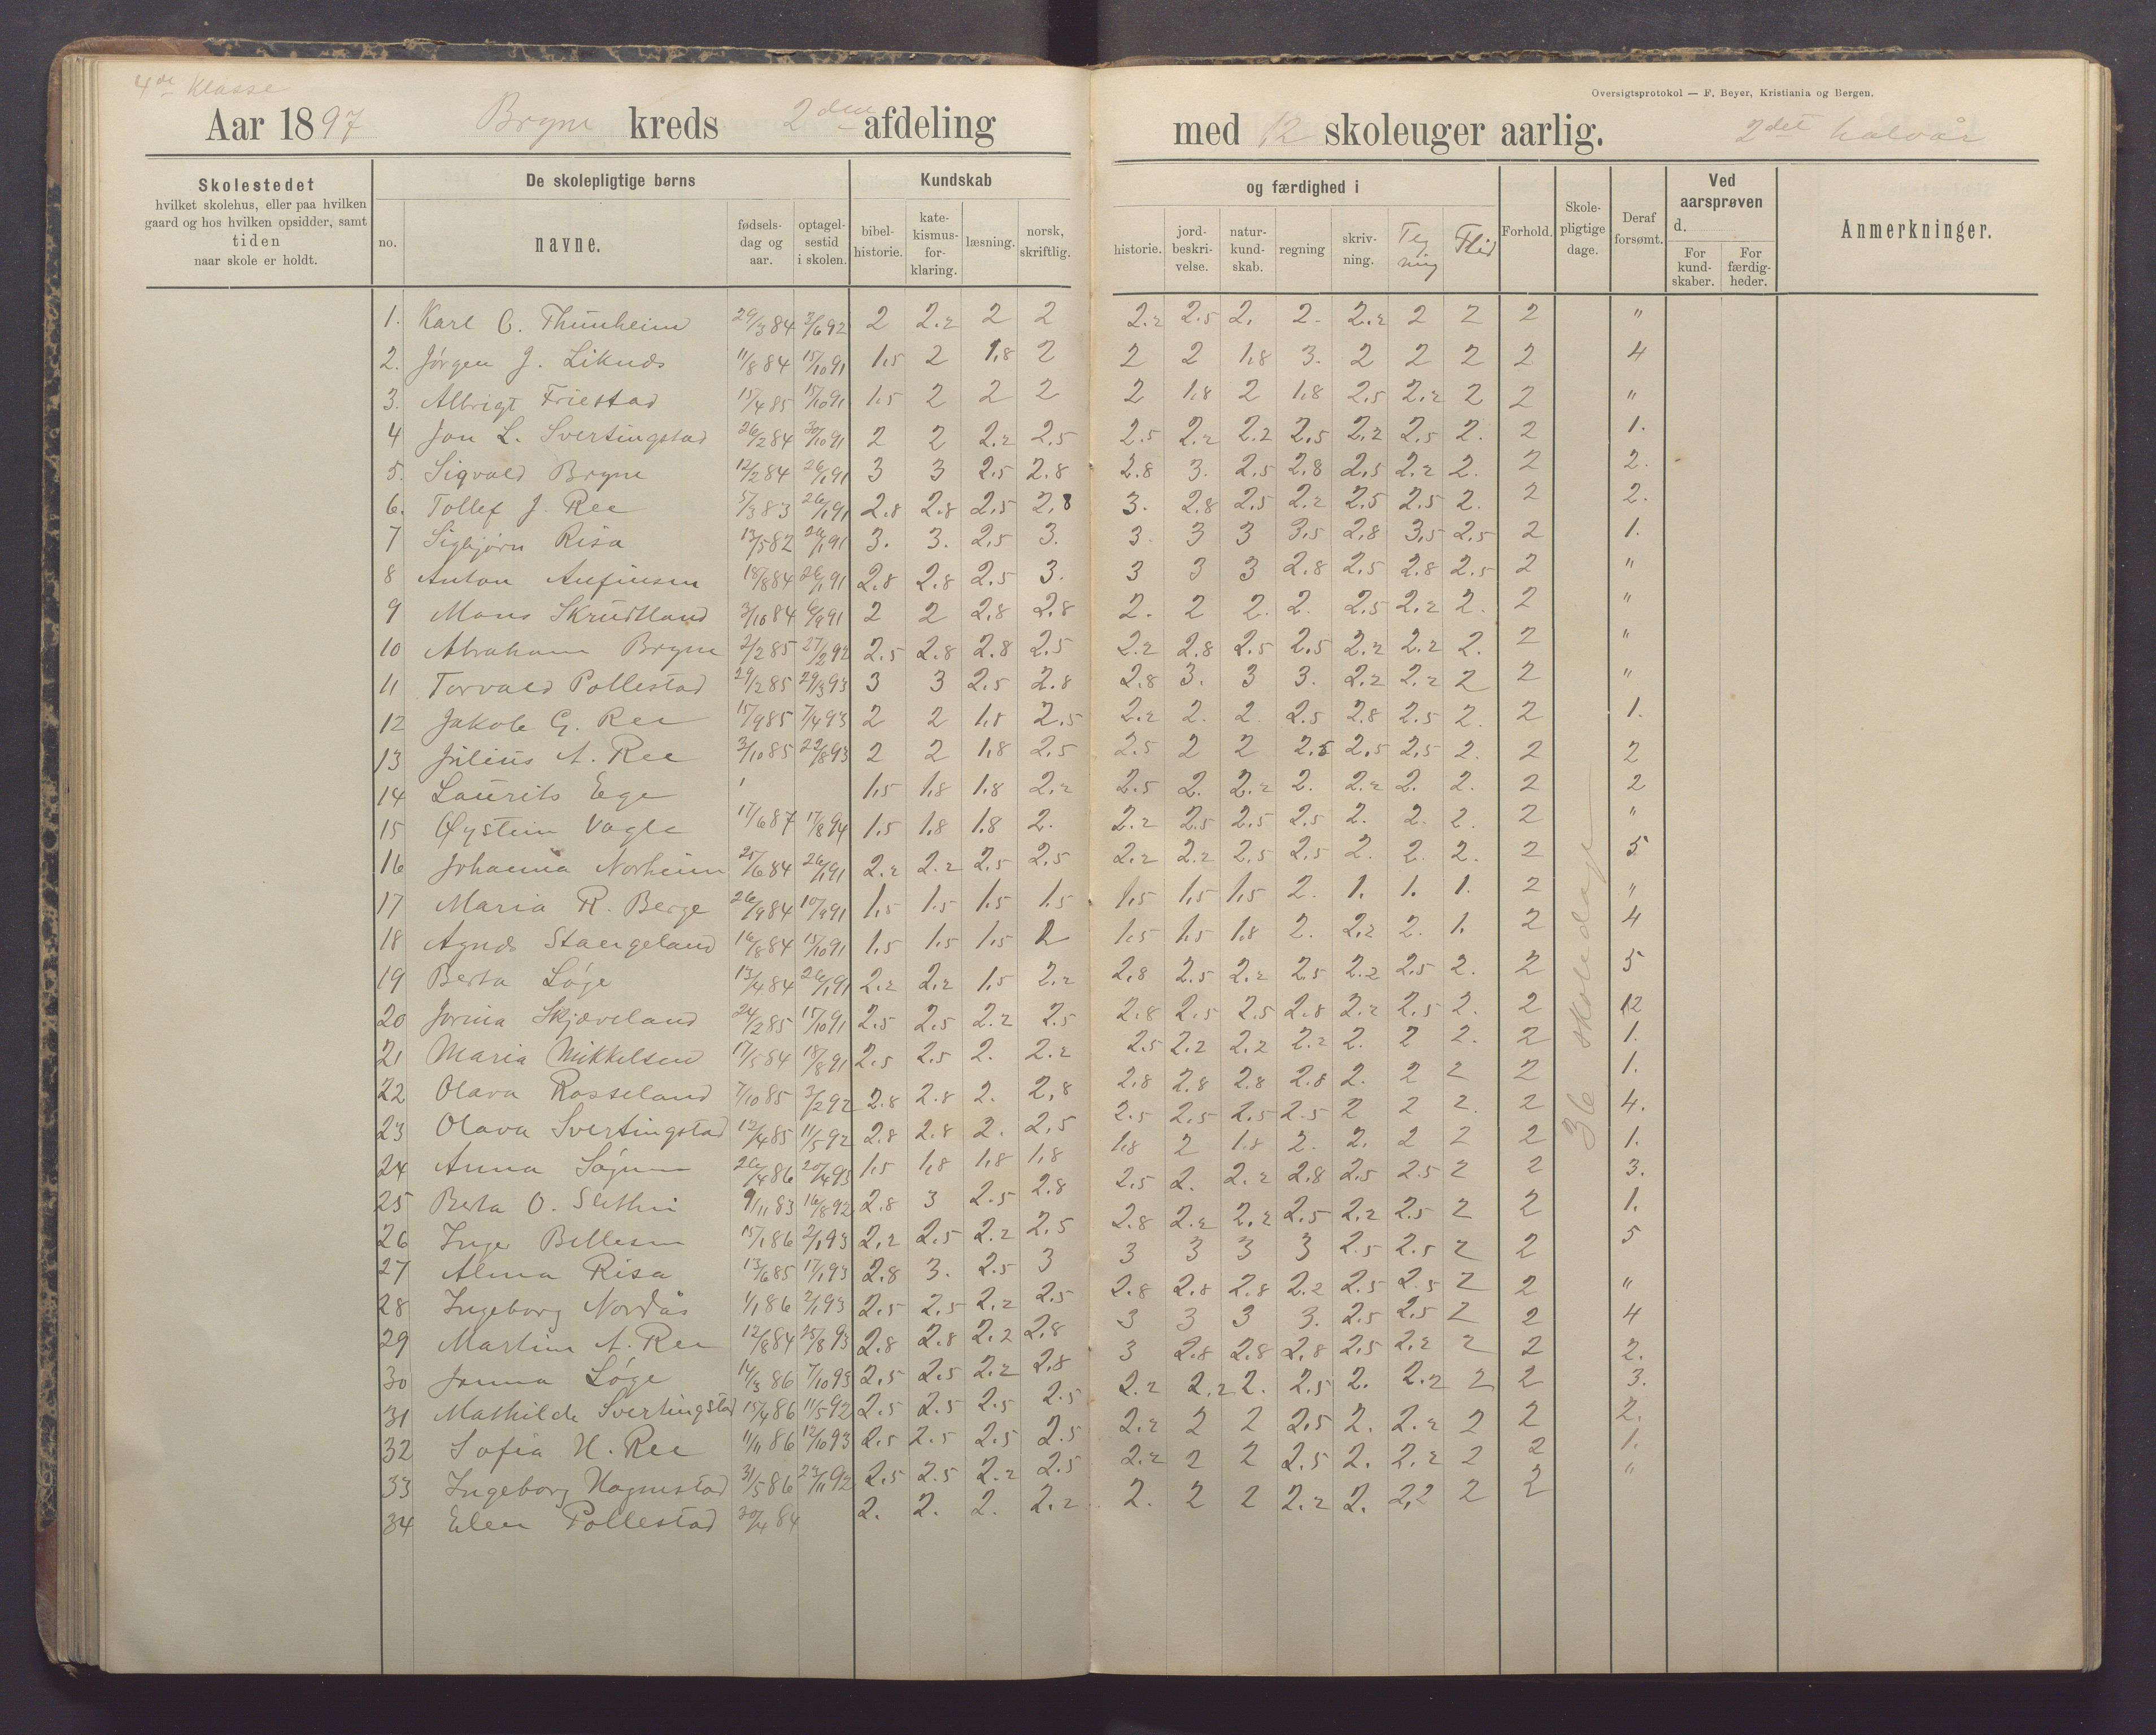 4de Klasse
Oversigtsprotokol — F. Beyer, Kristiania og Bergen.
Aar 1897 Bryne kreds 2den afdeling med 12 skoleuger aarlig. 2det halvår
Skolestedet hvilket skolehus, eller paa hvilken gaard og hos hvilken opsidder, samt tiden naar skole er holdt.
De skolepligtige børns
no. navne. fødsels-dag og aar. optagel-sestid i skolen.
Kundskab og færdighed i
bibel-historie. kate-kismus-for-klaring. læsning. norsk, skriftlig. historie. jord-beskri-velse. natur-kund-skab. regning skriv-ning. Tegning Flid
Forhold. Skole-pligtige dage. Deraf forsømt.
Ved aarsprøven d. For kund-skaber. For færdig-heder.
Anmerkninger.
1. Karl C. Thunheim 29/3 84 2/6 92 2 2.2 2 2 2.2 2.5 2. 2. 2.2 2 2 2 "
2. Jørgen J. Liknes 11/8 84 15/10 91 1.5 2 1.8 2 2 2 1.8 3. 2 2 2 2 4
3. Albrigt Friestad 15/4 85 15/10 91 1.5 2 2 2 2 1.8 2 1.8 2.5 2.2 2 2 "
4 Jon L. Svertingstad 26/2 84 30/10 91 2 2 2.2 2.5 2.5 2.2 2.2 2.5 2.2 2.5 2. 2 1.
5. Sigvald Bryne 12/2 84 26/1 91 3 3 2.5 2.8 2.8 3. 2.5 2.8 2.5 2.2 2. 2 2.
6. Tollef J. Ree 5/3 83 26/1 91 2.8 2.8 2.5 2.8 3. 2.8 2.5 2.2 2.5 2.5 2. 2 2.
7 Sigbjørn Risa 13/5 82 26/1 91 3. 3. 2.5 3. 3. 3 3 3.5 2.8 3.5 2.5 2 1.
8 Anton Anfinsen 18/8 84 26/1 91 2.8 2.8 2.5 3. 3 3 3 2.8 2.5 2.8 2.5 2 "
9 Mons Skrudland 3/10 84 6/9 91 2 2 2.8 2.8 2. 2 2. 2. 2.5 2.2 2. 2 "
10 Abraham Bryne 2/2 85 27/2 92 2.5 2.8 2.8 2.5 2.2 2.8 2.5 2.5 2.2 2.2 2. 2 "
11 Torvald Pollestad 29/2 85 29/3 93 3 3 2.5 2.8 2.8 3. 3 3. 2.2 2.2 2 2 "
12 Jakob G. Ree 15/9 85 7/4 93 2 2 1.8 2.5 2.2 2. 2. 2.5 2.8 2.5 2. 2 1.
13 Julius A. Ree 3/10 85 22/8 93 2 2 1.8 2.5 2.5 2 2 2.5 2.5 2.5 2. 2 2
14 Laurits Ege 1.5 1.8 1.8 2.2 2.5 2. 2.2 2. 2.2 2. 2. 2 2
15 Øystein Vagle 17/6 87 17/8 94 1.5 1.8 1.8 2. 2.2 2.5 2.5 2.5 2. 2. 2. 2 "
16 Johanna Norheim 25/6 84 26/1 91 2.2 2.2 2.5 2.5 2.2 2.2 2.5 2.5 2. 2. 2. 2 5
17 Maria R. Berge 26/9 84 10/9 91 1.5 1.5 1.5 1.5 1.5 1.5 1.5 2. 1. 1. 1. 2 "
18 Agnes Stangeland 16/8 84 15/10 91 1.5 1.5 1.5 2 1.5 1.5 1.8 2. 2.2 2. 1. 2 4
19 Berta Løge 13/4 84 26/1 91 2.2 2.2 1.5 2.2 2.8 2.5 2.2 2.5 2.2 2.5 2. 2 5
20 Jorina Skjæveland 24/2 85 15/10 91 2.5 2.5 2.2 2.5 2.8 2.5 2.5 2.8 2.2 2.5 2. 2 12
21 Maria Mikkelsen 17/5 84 18/8 91 2.5 2.5 2. 2.2 2.5 2.2 2.2 2.2 2. 2 2. 2 1.
22 Olava Rosseland 7/10 85 3/2 92 2.8 2.8 2. 2.8 2.8 2.8 2.8 2.8 2. 2 2 2 1.
23 Olava Svertingstad 12/4 85 11/5 92 2.8 2.8 2. 2.5 2.5 2.5 2.5 2.5 2 2 2. 2 4.
24 Anna Søgnen 26/4 86 20/4 93 1.5 1.8 1.8 1.8 1.8 2 1.8 2. 2. 2 2 2 1.
25 Berta O. Slethei 9/11 83 16/8 92 2.8 3 2.5 2.8 2.5 2. 2.2 2.8 2.5 2.5 2 2 3.
26 Inger Bellesen 15/1 86 2/1 93 2.2 2.5 2.2 2.5 2.8 2.2 2.2 2.5 2.2 2.5 2 2 1.
27 Alma Risa 13/6 85 17/1 93 2.8 3. 2.5 3 3 3 3 3 2.5 2.5 2 2 5
28 Ingeborg Nordås 1/1 86 2/1 93 2.5 2.5 2.2 2.5 2.8 2.8 2.8 2.2 2.5 2.5 2 2 "
29 Martine A. Ree 12/8 84 25/8 93 2.8 2.8 2.2 2.8 3 3 3 3. 2.5 2.5 2 2 4
30 Jonna Løge 14/3 86 7/10 93 2.5 2.5 2.2 2.8 3 2.8 2.8 2.8 2.5 2.2 2 2 2.
31 Mathilde Svertingstad 15/4 86 11/5 92 2.5 2.5 2.5 2.5 2.2 2.2 2. 2.5 2. 2.2 2 2 3.
32 Sofia H. Ree 11/11 86 12/10 93 2.5 2.5 2.5 2.5 2.2 2 2 2.5 2. 2.2 2 2 2.
33 Ingeborg Hognestad 31/5 86 24/11 92 2.5 2.5 2.2 2.5 2.2 2 2 2.5 2. 2.2 2 2 1.
34 Elen Pollestad 30/4 84 2. 2. 2. 2.2 2. 2 2 2.2 2. 2.2 2 2 "
36 skoledage